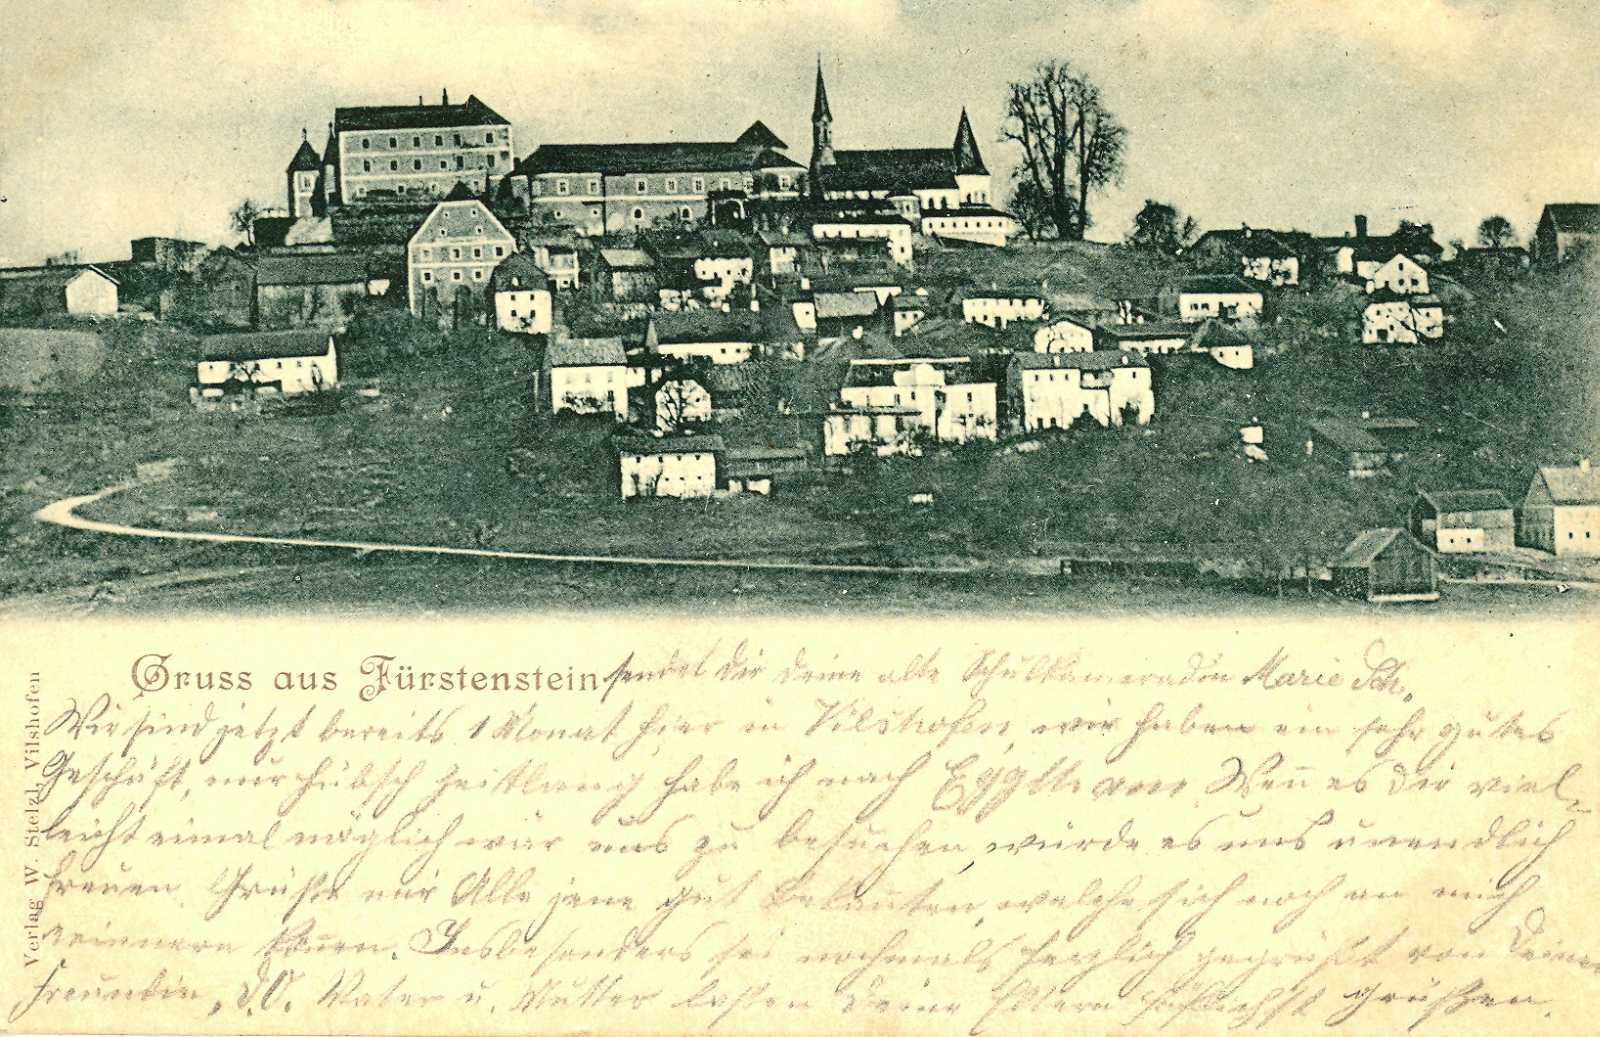 Gruss aus Fürstenstein sendet Dir deine alte Schulkameradin Marie Sch.
Wir sind jetzt bereits 1 Monat hier in Vilshofen, wir haben ein sehr gutes
Geschäft, nur hübsch Zeitlang habe ich nach Wen̄ es Dir viel-
leicht einmal möglich wär uns zu besuchen, würde es uns unendlich
freuen. Grüße mir Alle jene gut Bekan̄ten, welche sich noch an mich
erinnern kön̄en. Insbesonders sei nochmals herzlich gegrüßt von Deiner
Freundin, d.O. Vater u. Mutter lassen Deine Eltern höflichst grüßen.
Verlag W. Stelzl, Vilshofen